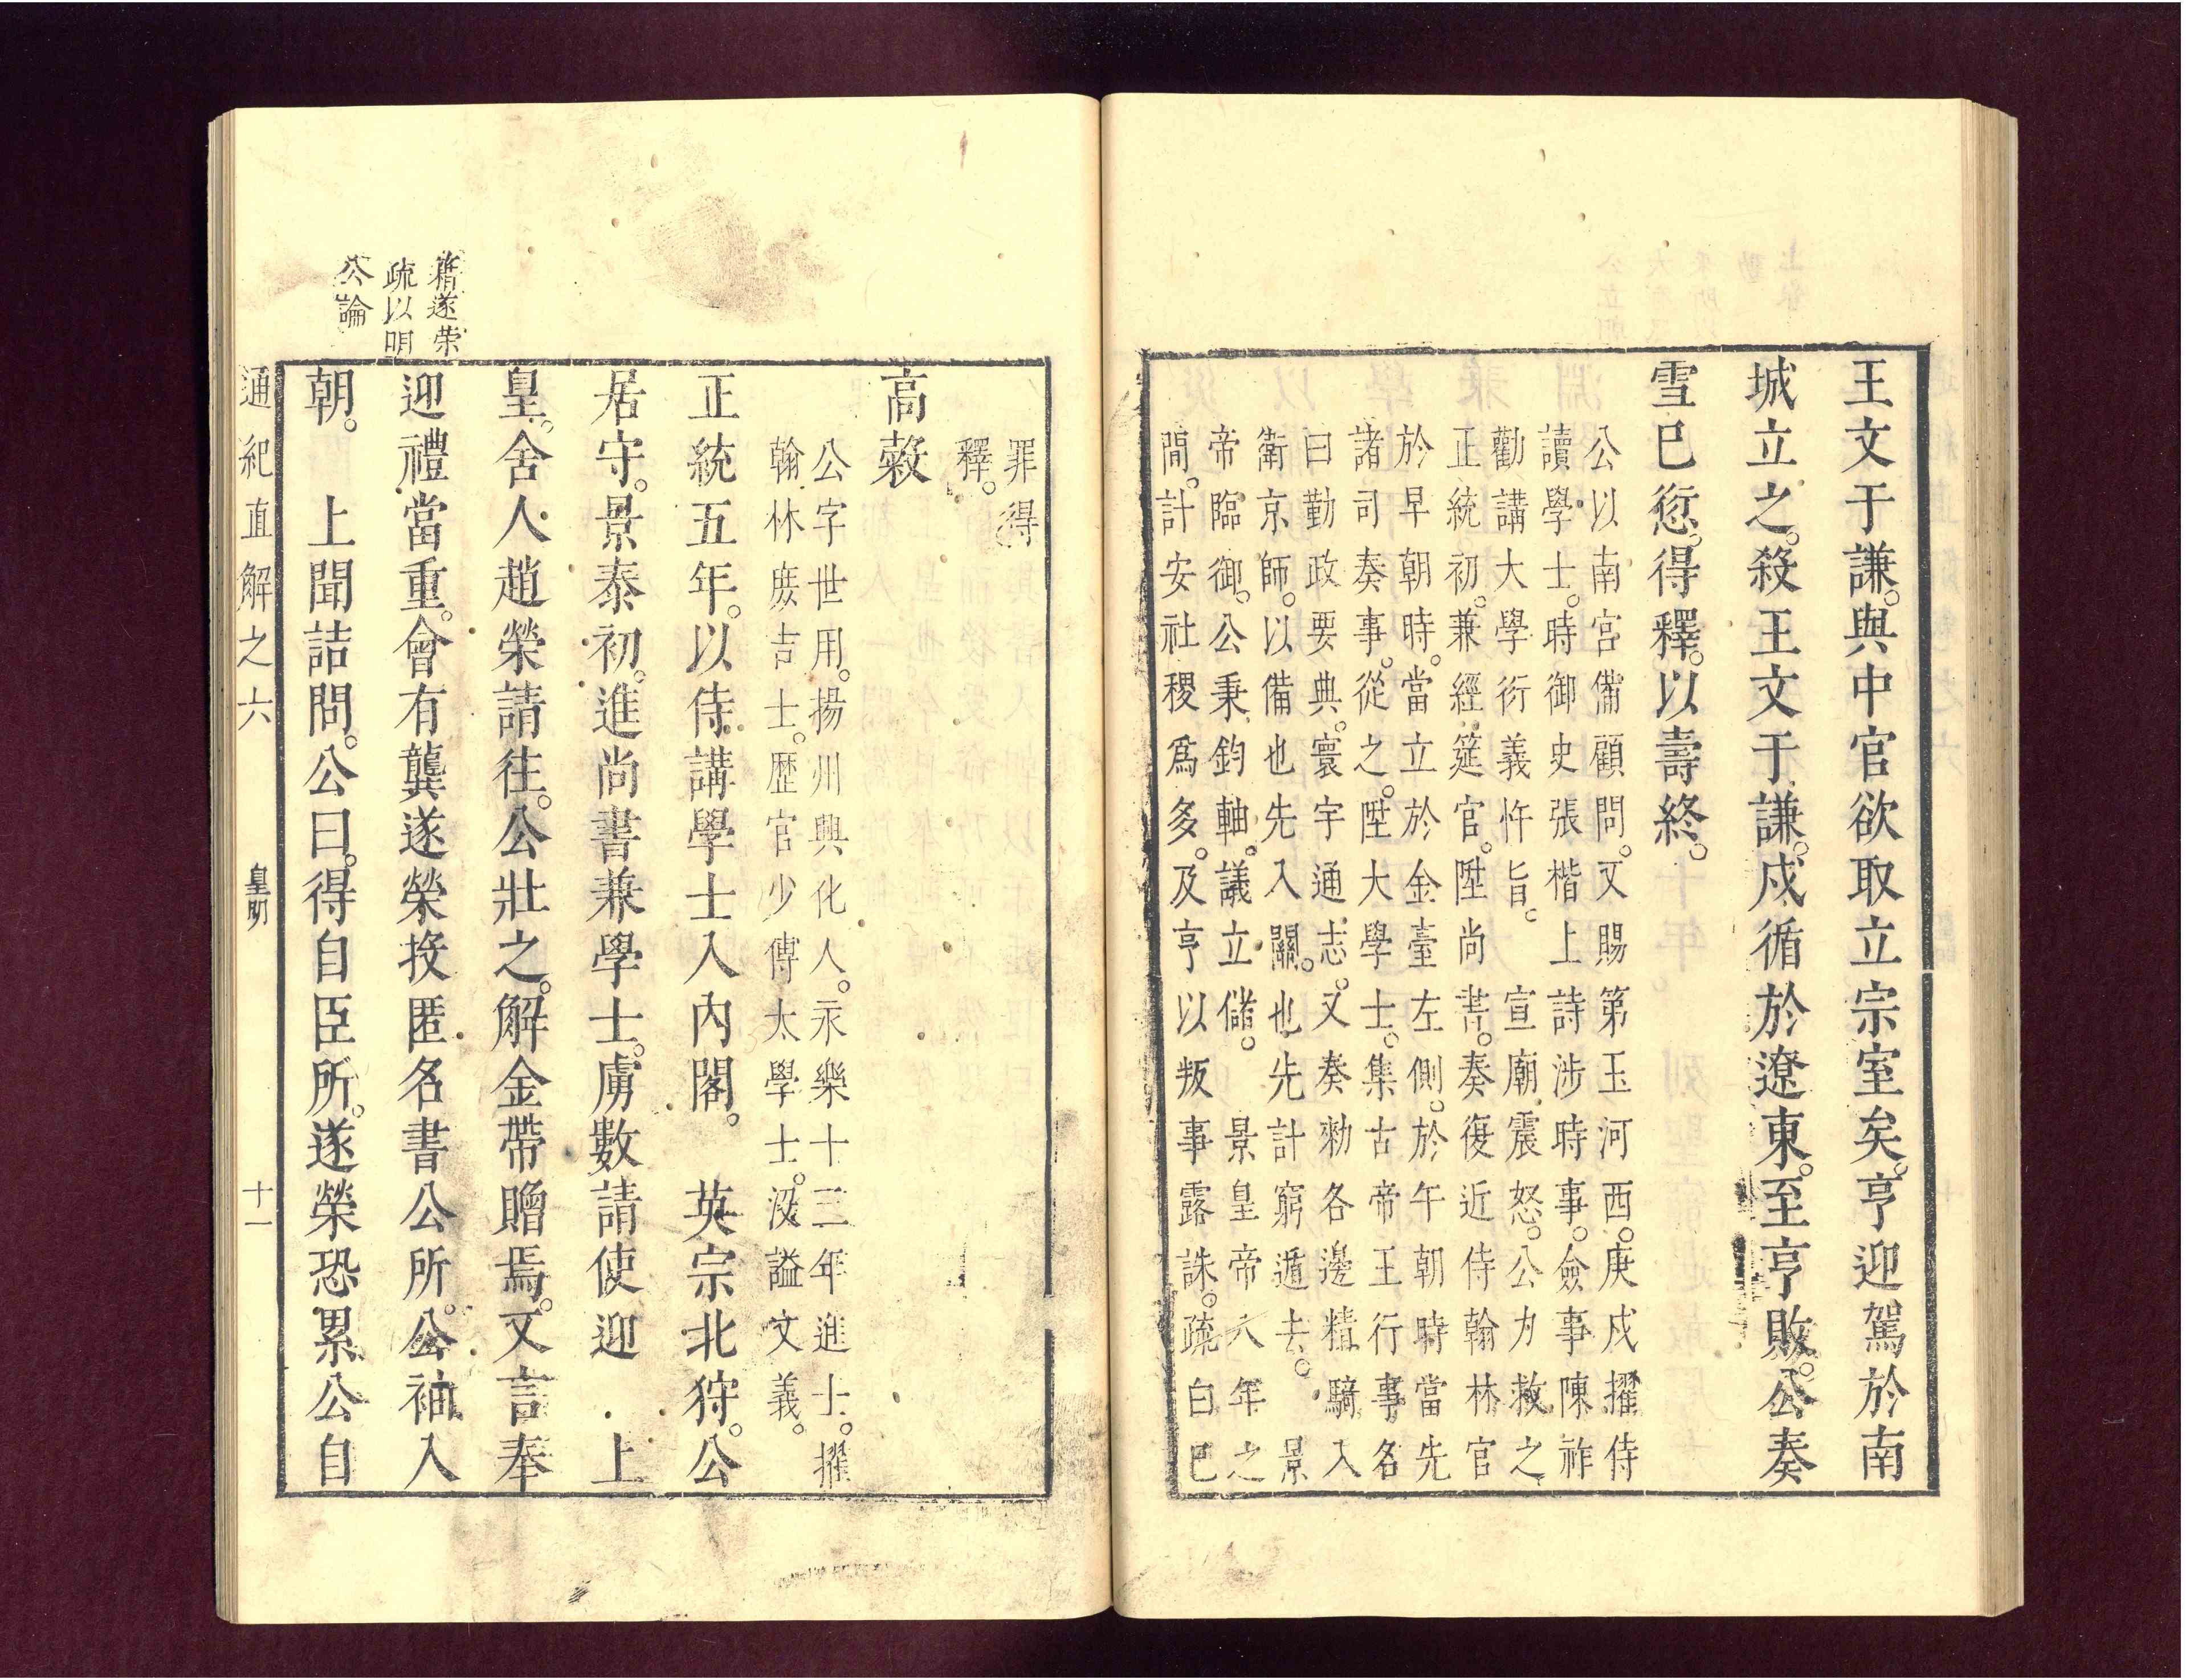 王文于謙。與中官欲取立宗室矣。亨迎駕於南
城立之。殺王文于謙。戍循於遼東。至亨敗。公奏
雪已愆。得釋。以壽終。
公以南宮備顧問。又賜第玉河西。庚戍擢侍
讀學士。時御史張楷上詩涉時事。僉事陳祚
勸講大學衍義忤旨。 宣廟震怒。公力救之
正統初。兼經筵官。陞尚書。奏復近侍翰林官
於早朝時。當立於金臺左側。於午朝時當先
諸司奏事。從之。陞大學士。集古帝王行事名
曰勤政要典。寰宇通志。又奏勑各邊精騎入
衛京師。以備也先入關。也先計窮遁去。 景
帝臨御。公秉鈞軸。議立儲。 景皇帝八年之
間。計安社稷爲多。及亨以叛事露誅。疏白已
罪得
釋。
高穀
公字世用。揚州興化人。永樂十三年進士。擢
翰林庶吉士。歷官少傅太學士。沒謚文義。
正統五年。以侍講學士入內閣。 英宗北狩。公
居守。景泰初。進尚書兼學士。虜數請使迎 上
皇。舍人趙榮請往。公壯之。解金帶贈焉。又言奉
迎禮當重。會有龔遂榮投匿名書公所。公袖入
朝。 上聞詰問。公曰。得自臣所。遂榮恐累公自
籍遂荣
疏以明
公論
通紀直解之六 皇明 十一